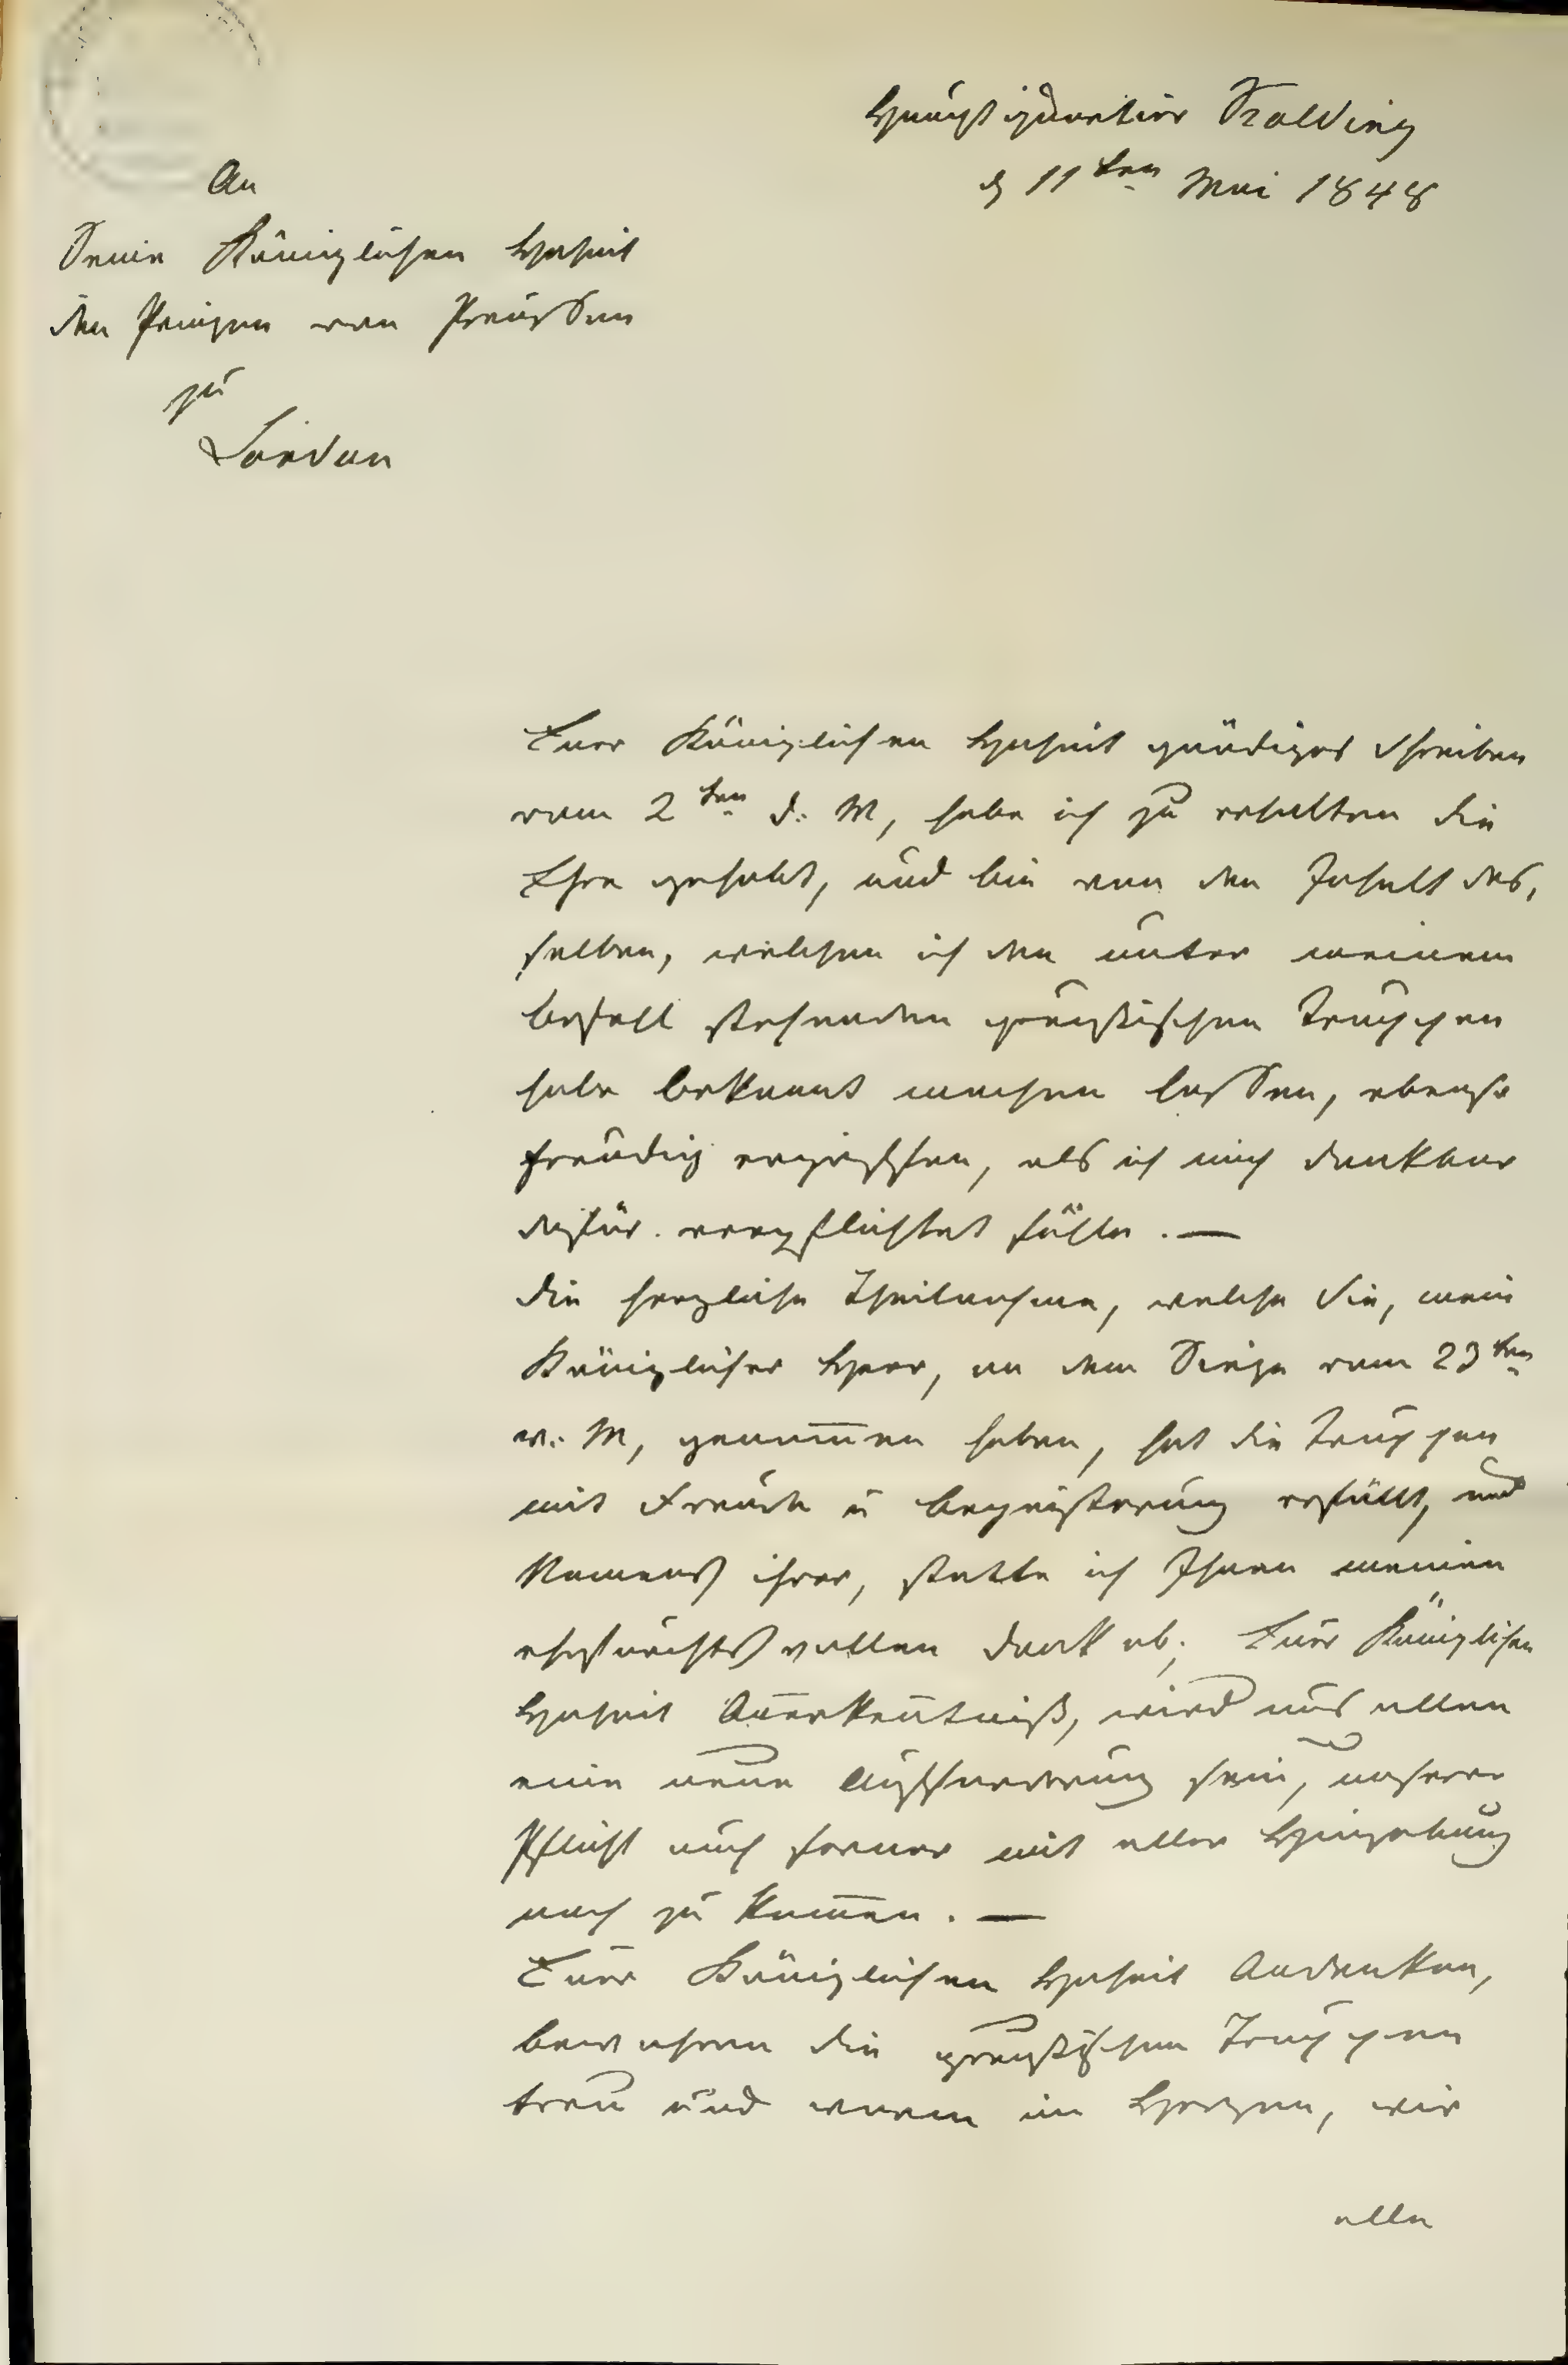 Hauptquartier Kolding
d 11ten Mai 1848
An
Seine Königlichen Hoheit
den Prinzen von Preußen
zu
London
Euer Königlichen Hoheit gnädiges Schreiben
vom 2ten d: M, habe ich zu erhalten die
Ehre gehabt, und bin von den Inhalt des,
selben, welchen ich den unter meinem
befehl stehenden preußischen Truppen
habe bekannt machen lassen, ebenso
freudig ergriffen, als ich mich dankbar
dafür verpflichtet fühle. —
die herzliche Theilnahme, welche Sie, mein
Königlicher Herr, an dem Siege vom 23ten
v: M, genom̅en haben, hat die Truppen
mit Freude u begeisterung erfüllt, und
Namens ihrer, statte ich Ihnen meinen
ehrfurchtsvollen dank ab; Euer Königlichen
Hoheit An̅erken̅tniß, wird uns allen
eine neue Aufforderung sein, unserer
Pflicht auch ferner mit aller Hingebung
nach zu kom̅en. —
Euer Königlichen Hoheit Andenken,
bewahren die preußischen Truppen
treu und warm im Herzen, wir
alle